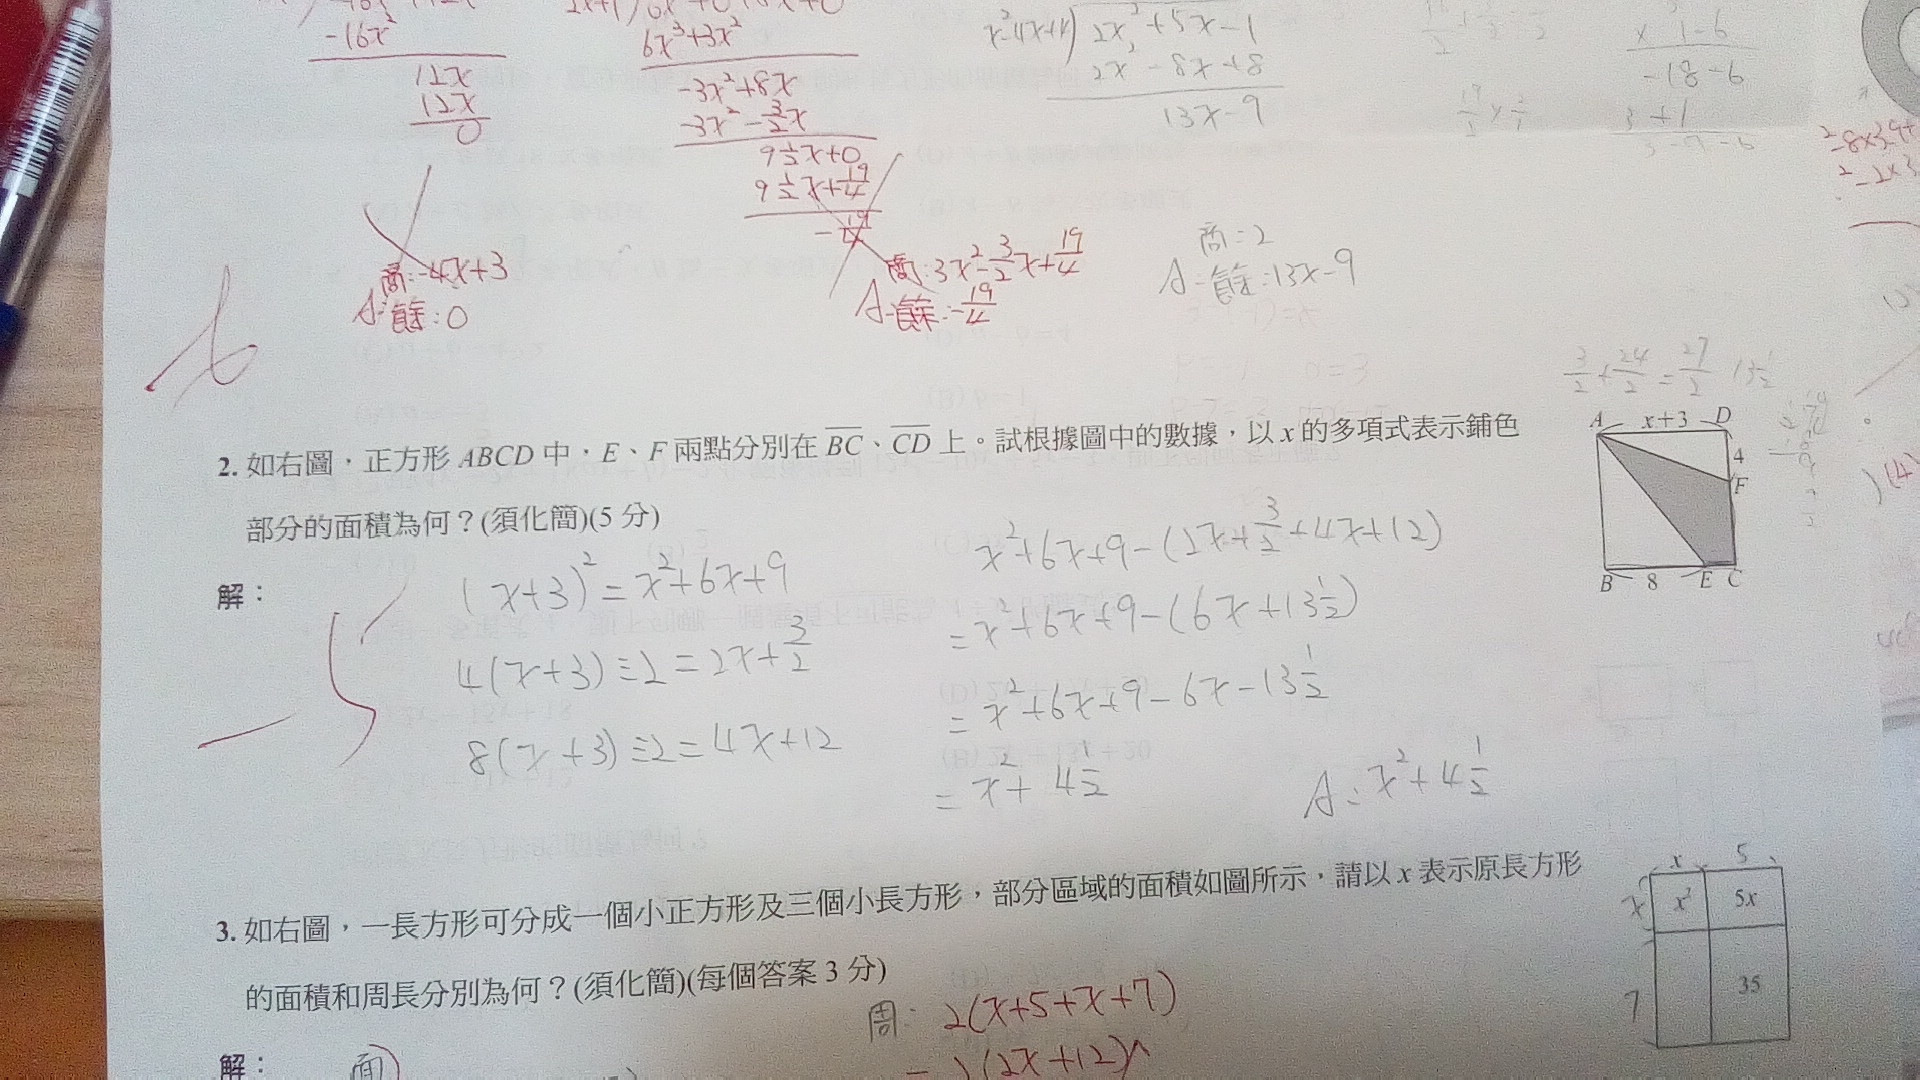 -16x²
12x
12x
0
商:-4x+3
A:餘:0
6x³+3x²
-3x²+8x
-3x²-3/2x
9½x+0
9½x+19/4
-19/4
商:3x²-3/2x+19/4
A:餘:-19/4
x²-4x+4 2x²+5x-1
2x²-8x+8
13x-9
商:2
A:餘:13x-9
x 1-6
-18-6
3+1
3/2+24/2=27/2 13½
2. 如右圖，正方形 ABCD 中，E、F 兩點分別在 BC、CD 上。試根據圖中的數據，以 x 的多項式表示鋪色
部分的面積為何？(須化簡)(5 分)
A x+3 D
4
F
B 8 E C
解：
(x+3)²=x²+6x+9
4(x+3)÷2=2x+3/2
8(x+3)÷2=4x+12
x²+6x+9-(2x+3/2+4x+12)
=x²+6x+9-(6x+13½)
=x²+6x+9-6x-13½
=x²+4½
A:x²+4½
-5
3. 如右圖，一長方形可分成一個小正方形及三個小長方形，部分區域的面積如圖所示，請以 x 表示原長方形
的面積和周長分別為何？(須化簡)(每個答案 3 分)
x 5
x x² 5x
7 35
解：
面
周: 2(x+5+x+7)
=2(2x+12)